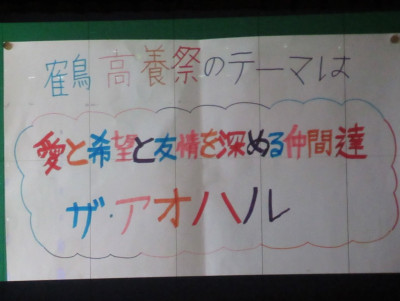 鶴高養祭のテーマは
愛と希望と友情を深める仲間達
ザ・アオハル